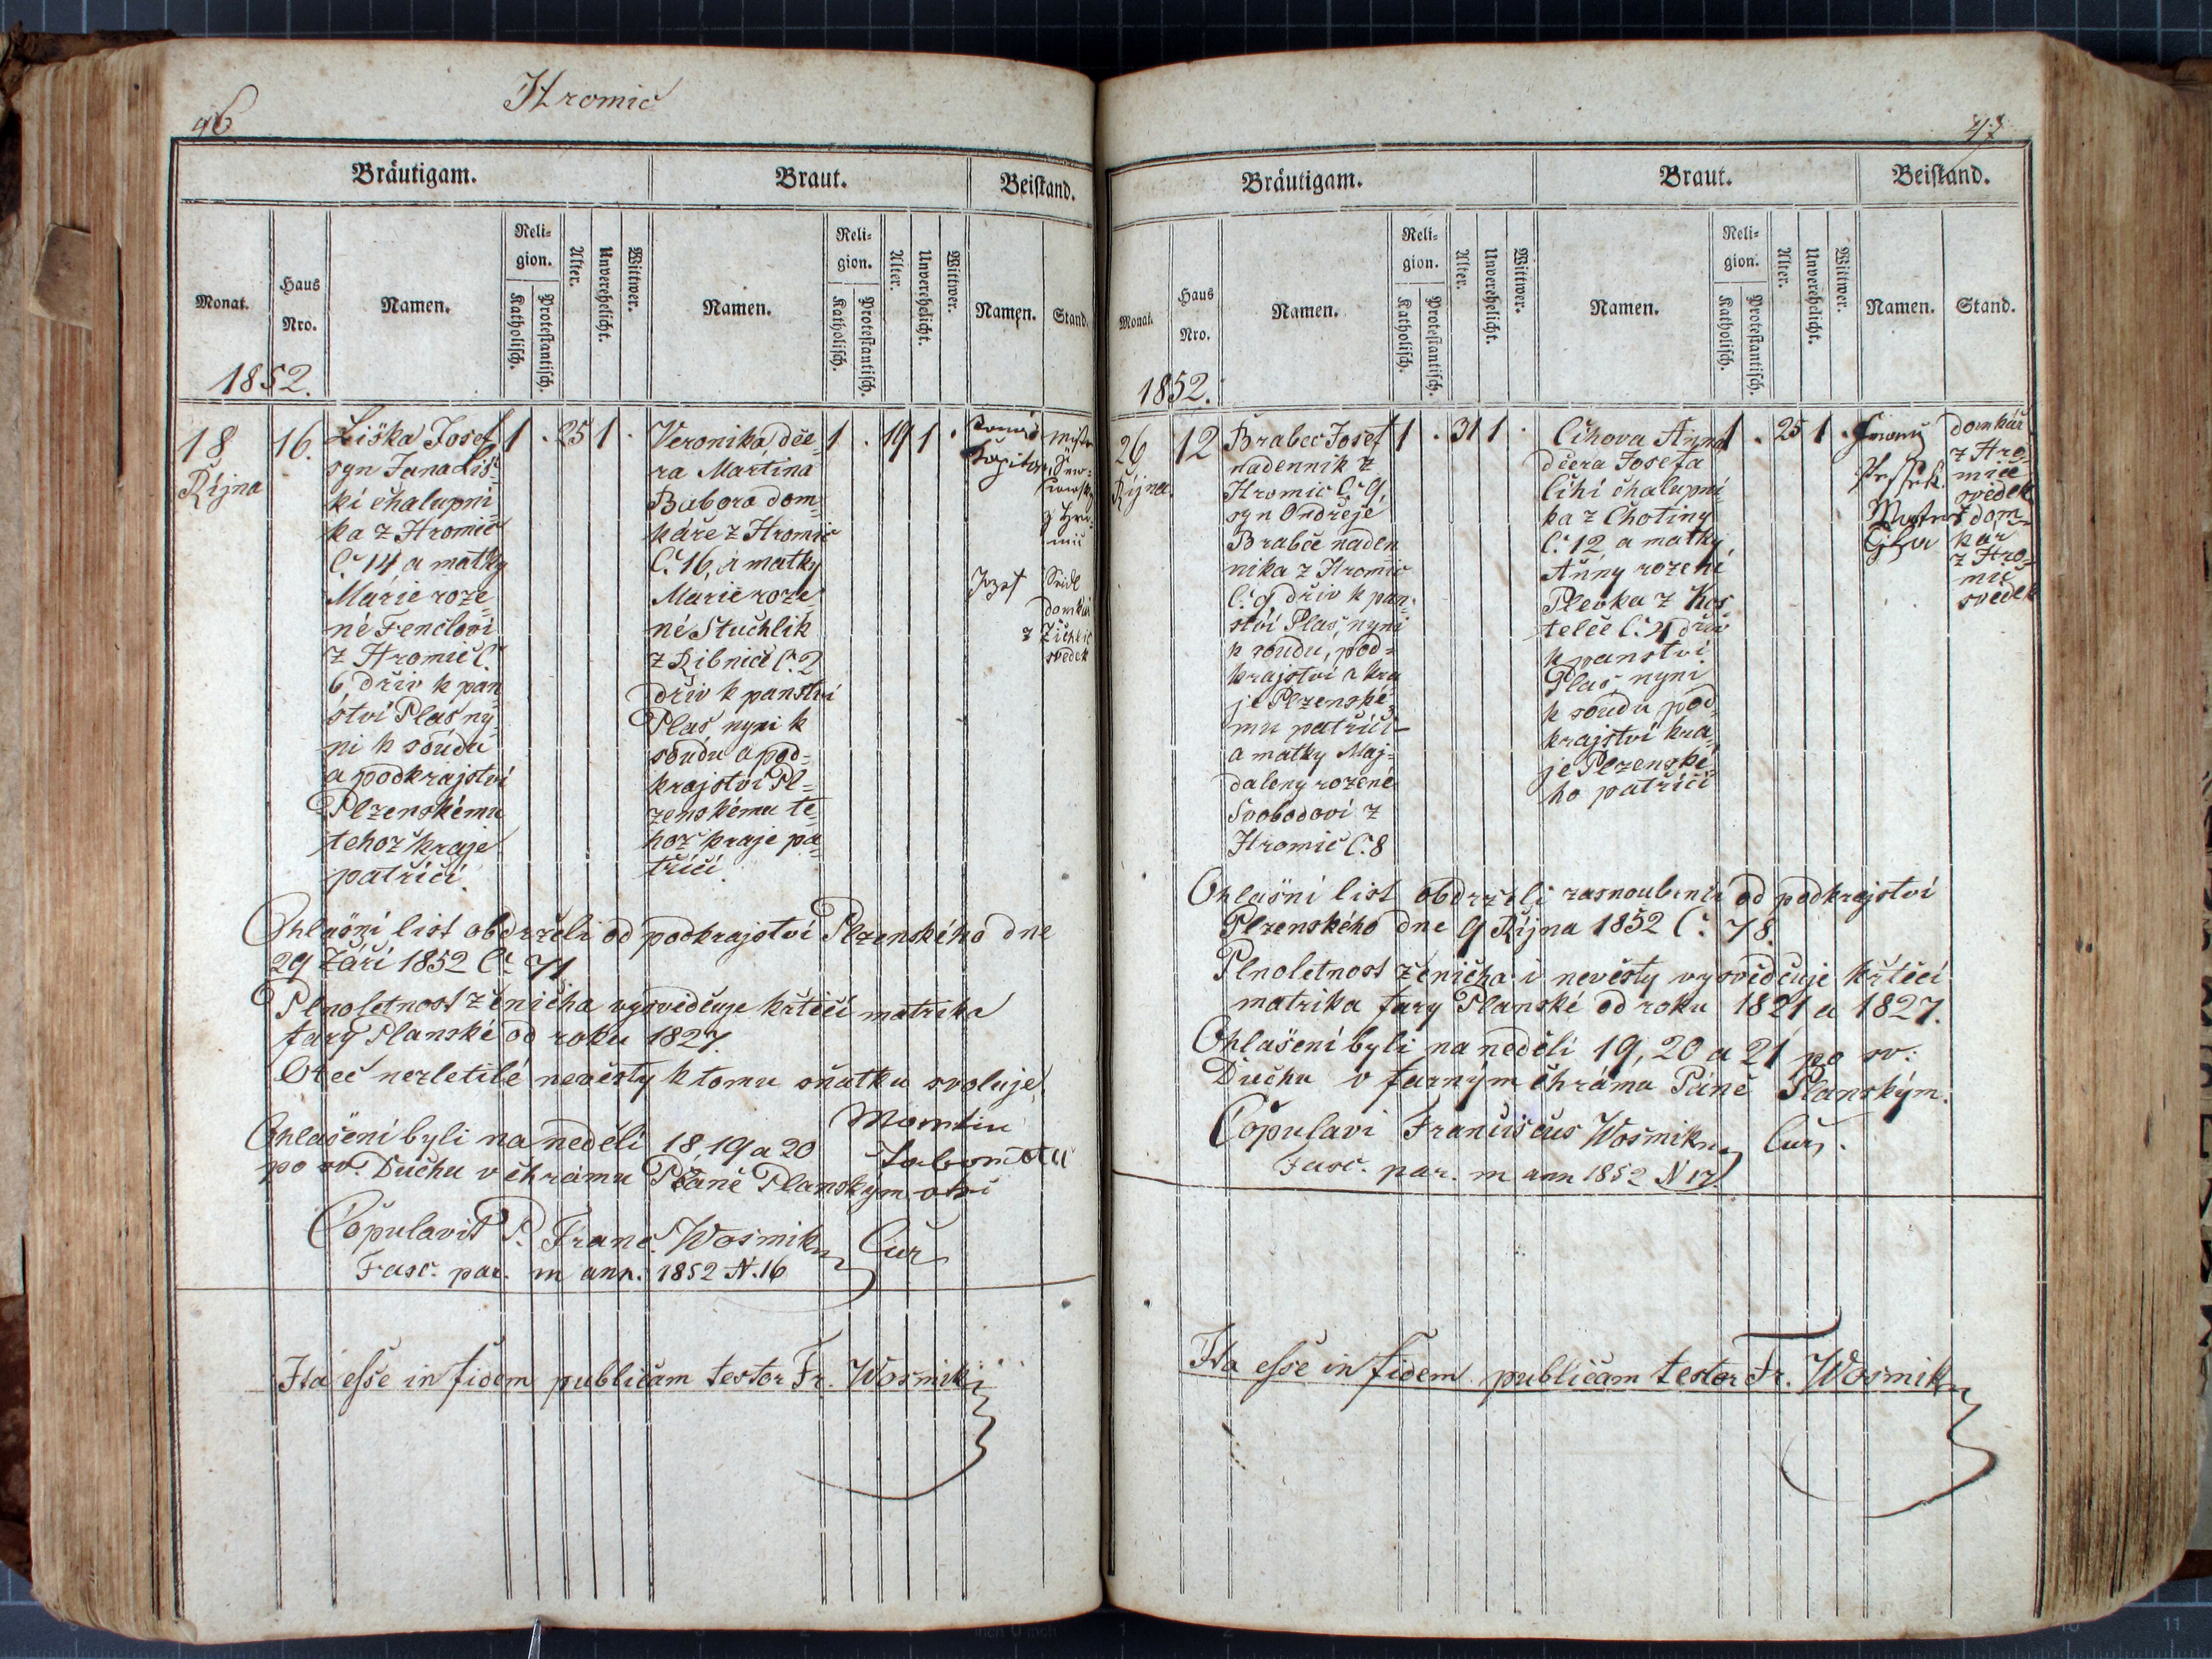 46
Hromic
Bräutigam.
Braut.
Beistand.
Monat.
Haus
Nro.
Namen.
Reli-
gion.
Katholisch.
Protestantisch.
Alter.
Unverehelicht.
Wittwer.
Namen.
Reli-
gion.
Katholisch.
Protestantisch.
Alter.
Unverehelicht.
Wittwer.
Namen.
Stand.
1852.
18
Října
16.
Liška Josef
syn Jana Liš-
ki chalupni-
ka z Hromic
Č. 14 a matky
Marie roze-
né Fenclovi
z Hromič Č.
6, dřiv k pan-
ství Plas ny-
ni k soudu
a podkrajství
Plzenskému
tehož kraje
patřiči.
1 . 25 1 .
Veronika, dce-
ra Martina
Babora dom-
káře z Hromic
Č. 16, a matky
Marie roze-
né Stuchlik
z Ribnic Č. 2
dřiv k panství
Plas nyni k
soudu a pod-
krajství Pl-
zenskému te-
hož kraje pa-
třiči.
1 . 19 1 .
Jozef
Seidl
domkář
z Žichlic
svedek
Ohlašni list obdrželi od podkrajství Plzenského dne
29 Září 1852 Č. 71
Plnoletnost ženicha vysvědčuje křtiči matrika
fary Planské od roku 1827.
Otec nezletilé nevěsty k tomu sňatku svoluje.
Ohlašeni byli na neděli 18, 19 a 20
po sv. Duchu v chrámu Páně Planskym
Copulavit P. Franc. Wosmik Cur
Fasc. par. m ann. 1852 N. 16
Ita esse in fidem publicam testor Fr. Wosmik
47
Bräutigam.
Braut.
Beistand.
Monat.
Haus
Nro.
Namen.
Reli-
gion.
Katholisch.
Protestantisch.
Alter.
Unverehelicht.
Wittwer.
Namen.
Reli-
gion.
Katholisch.
Protestantisch.
Alter.
Unverehelicht.
Wittwer.
Namen.
Stand.
1852.
26
Října
12
Brabec Josef
nadennik z
Hromic Č. 9,
syn Ondřeje
Brabce naden-
nika z Hromic
Č. 9 dřiv k pan-
ství Plas nyni
k soudu, pod-
krajství a kra-
je Plzenské-
mu patřiči
a matky Maj-
daleny rozené
Svobodovi z
Hromič Č. 8
1 . 31 1 .
Čihova Anna
dcera Josefa
Čihi chalupni-
ka z Chotiny
Č. 12, a matky
Anny rozené
Plevka z Kos-
telce Č. 4 dřiv
k panství
Plas nyni
k soudu pod-
krajství kra-
je Plzenské-
ho patřiči
1 . 25 1 .
domkář
z Hro-
mic
svedek
dom-
kar
z Hro-
mic
svedek
Ohlašni list obdrželi zasnoubenci od podkrajství
Plzenského dne 9 Října 1852 Č. 78.
Plnoletnost ženicha i nevěsty vysvědčuje křtěci
matrika fary Planské od roku 1821 a 1827.
Ohlašeni byli na neděli 19, 20 a 21 po sv.
Duchu v farným chrámu Páně Planským.
Copulavi Franciscus Wosmik Cur.
Fasc. par. m ann 1852 N 17.
Ita esse in fidem publicam testor Fr. Wosmik